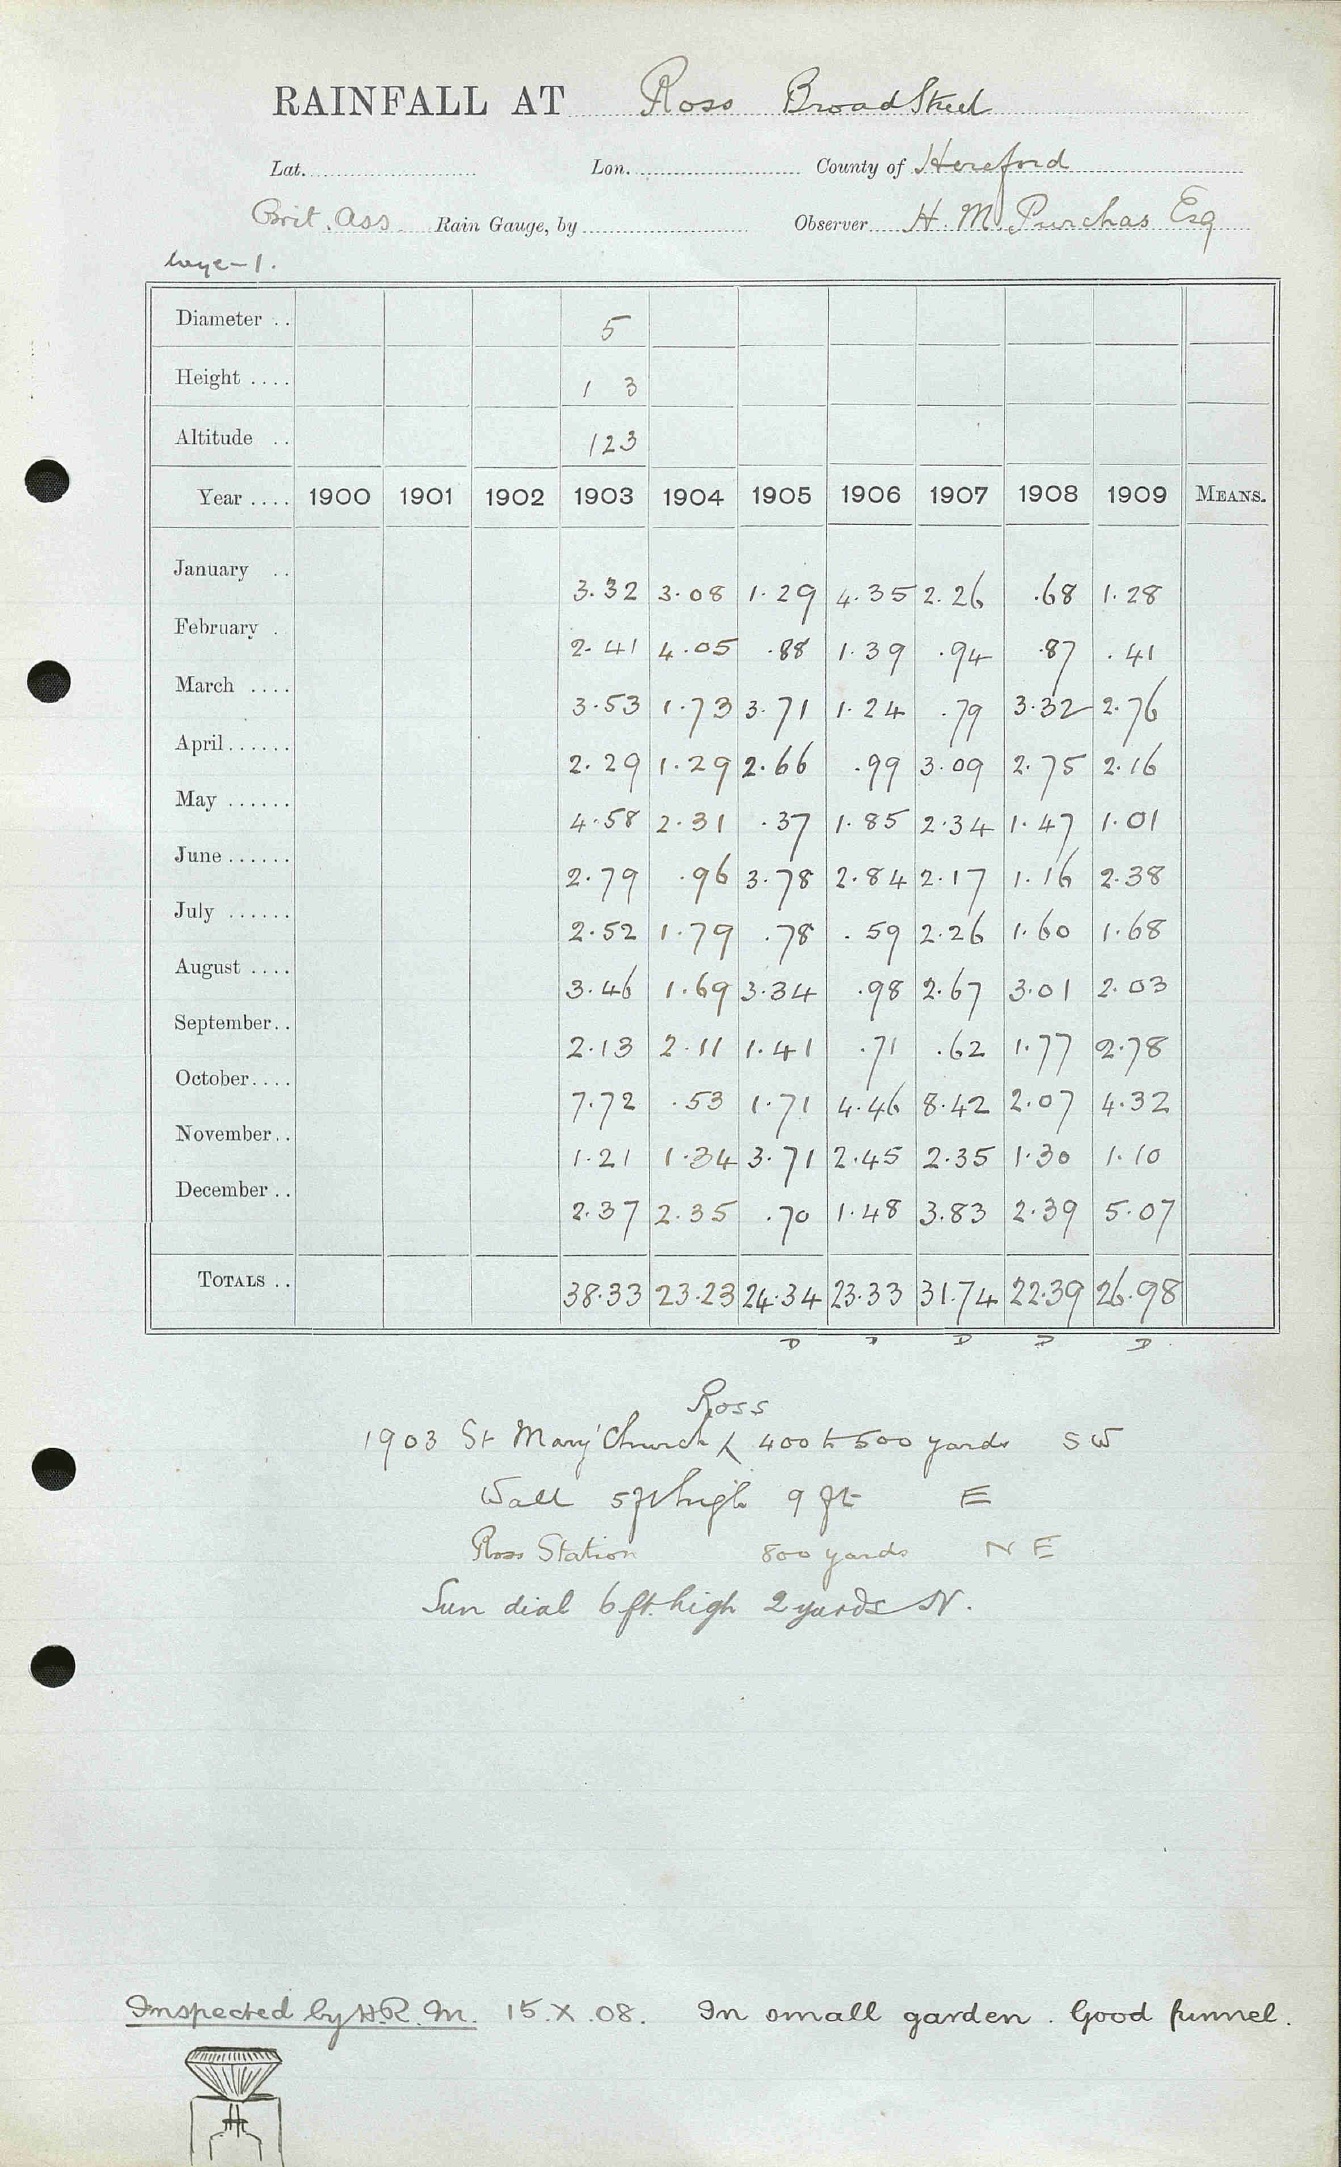 RAINFALL AT Ross Broad Street
Lat. Lon. County of Hereford
Brit. Ass Rain Gauge, by Observer H. M. Purchas Esq
Wye-1.
Diameter .. 5
Height .... 1 3
Altitude .. 123
Year .... 1900 1901 1902 1903 1904 1905 1906 1907 1908 1909 MEANS.
January .. 3.32 3.08 1.29 4.35 2.26 .68 1.28
February . 2.41 4.05 .88 1.39 .94 .87 .41
March .... 3.53 1.73 3.71 1.24 .79 3.32 2.76
April ...... 2.29 1.29 2.66 .99 3.09 2.75 2.16
May ...... 4.58 2.31 .37 1.85 2.34 1.47 1.01
June ...... 2.79 .96 3.78 2.84 2.17 1.16 2.38
July ...... 2.52 1.79 .78 .59 2.26 1.60 1.68
August .... 3.46 1.69 3.34 .98 2.67 3.01 2.03
September.. 2.13 2.11 1.41 .71 .62 1.77 2.78
October.... 7.72 .53 1.71 4.46 8.42 2.07 4.32
November.. 1.21 1.34 3.71 2.45 2.35 1.30 1.10
December .. 2.37 2.35 .70 1.48 3.83 2.39 5.07
TOTALS .. 38.33 23.23 24.34 23.33 31.74 22.39 26.98
D D D D D
Ross
1903 St Mary' Church 400 to 500 yards SW
Wall 5ft high 9 ft E
Ross Station 800 yards N E
Sun dial 6 ft. high 2 yards N.
Inspected by H.R.M. 15.X.08. In small garden. Good funnel.